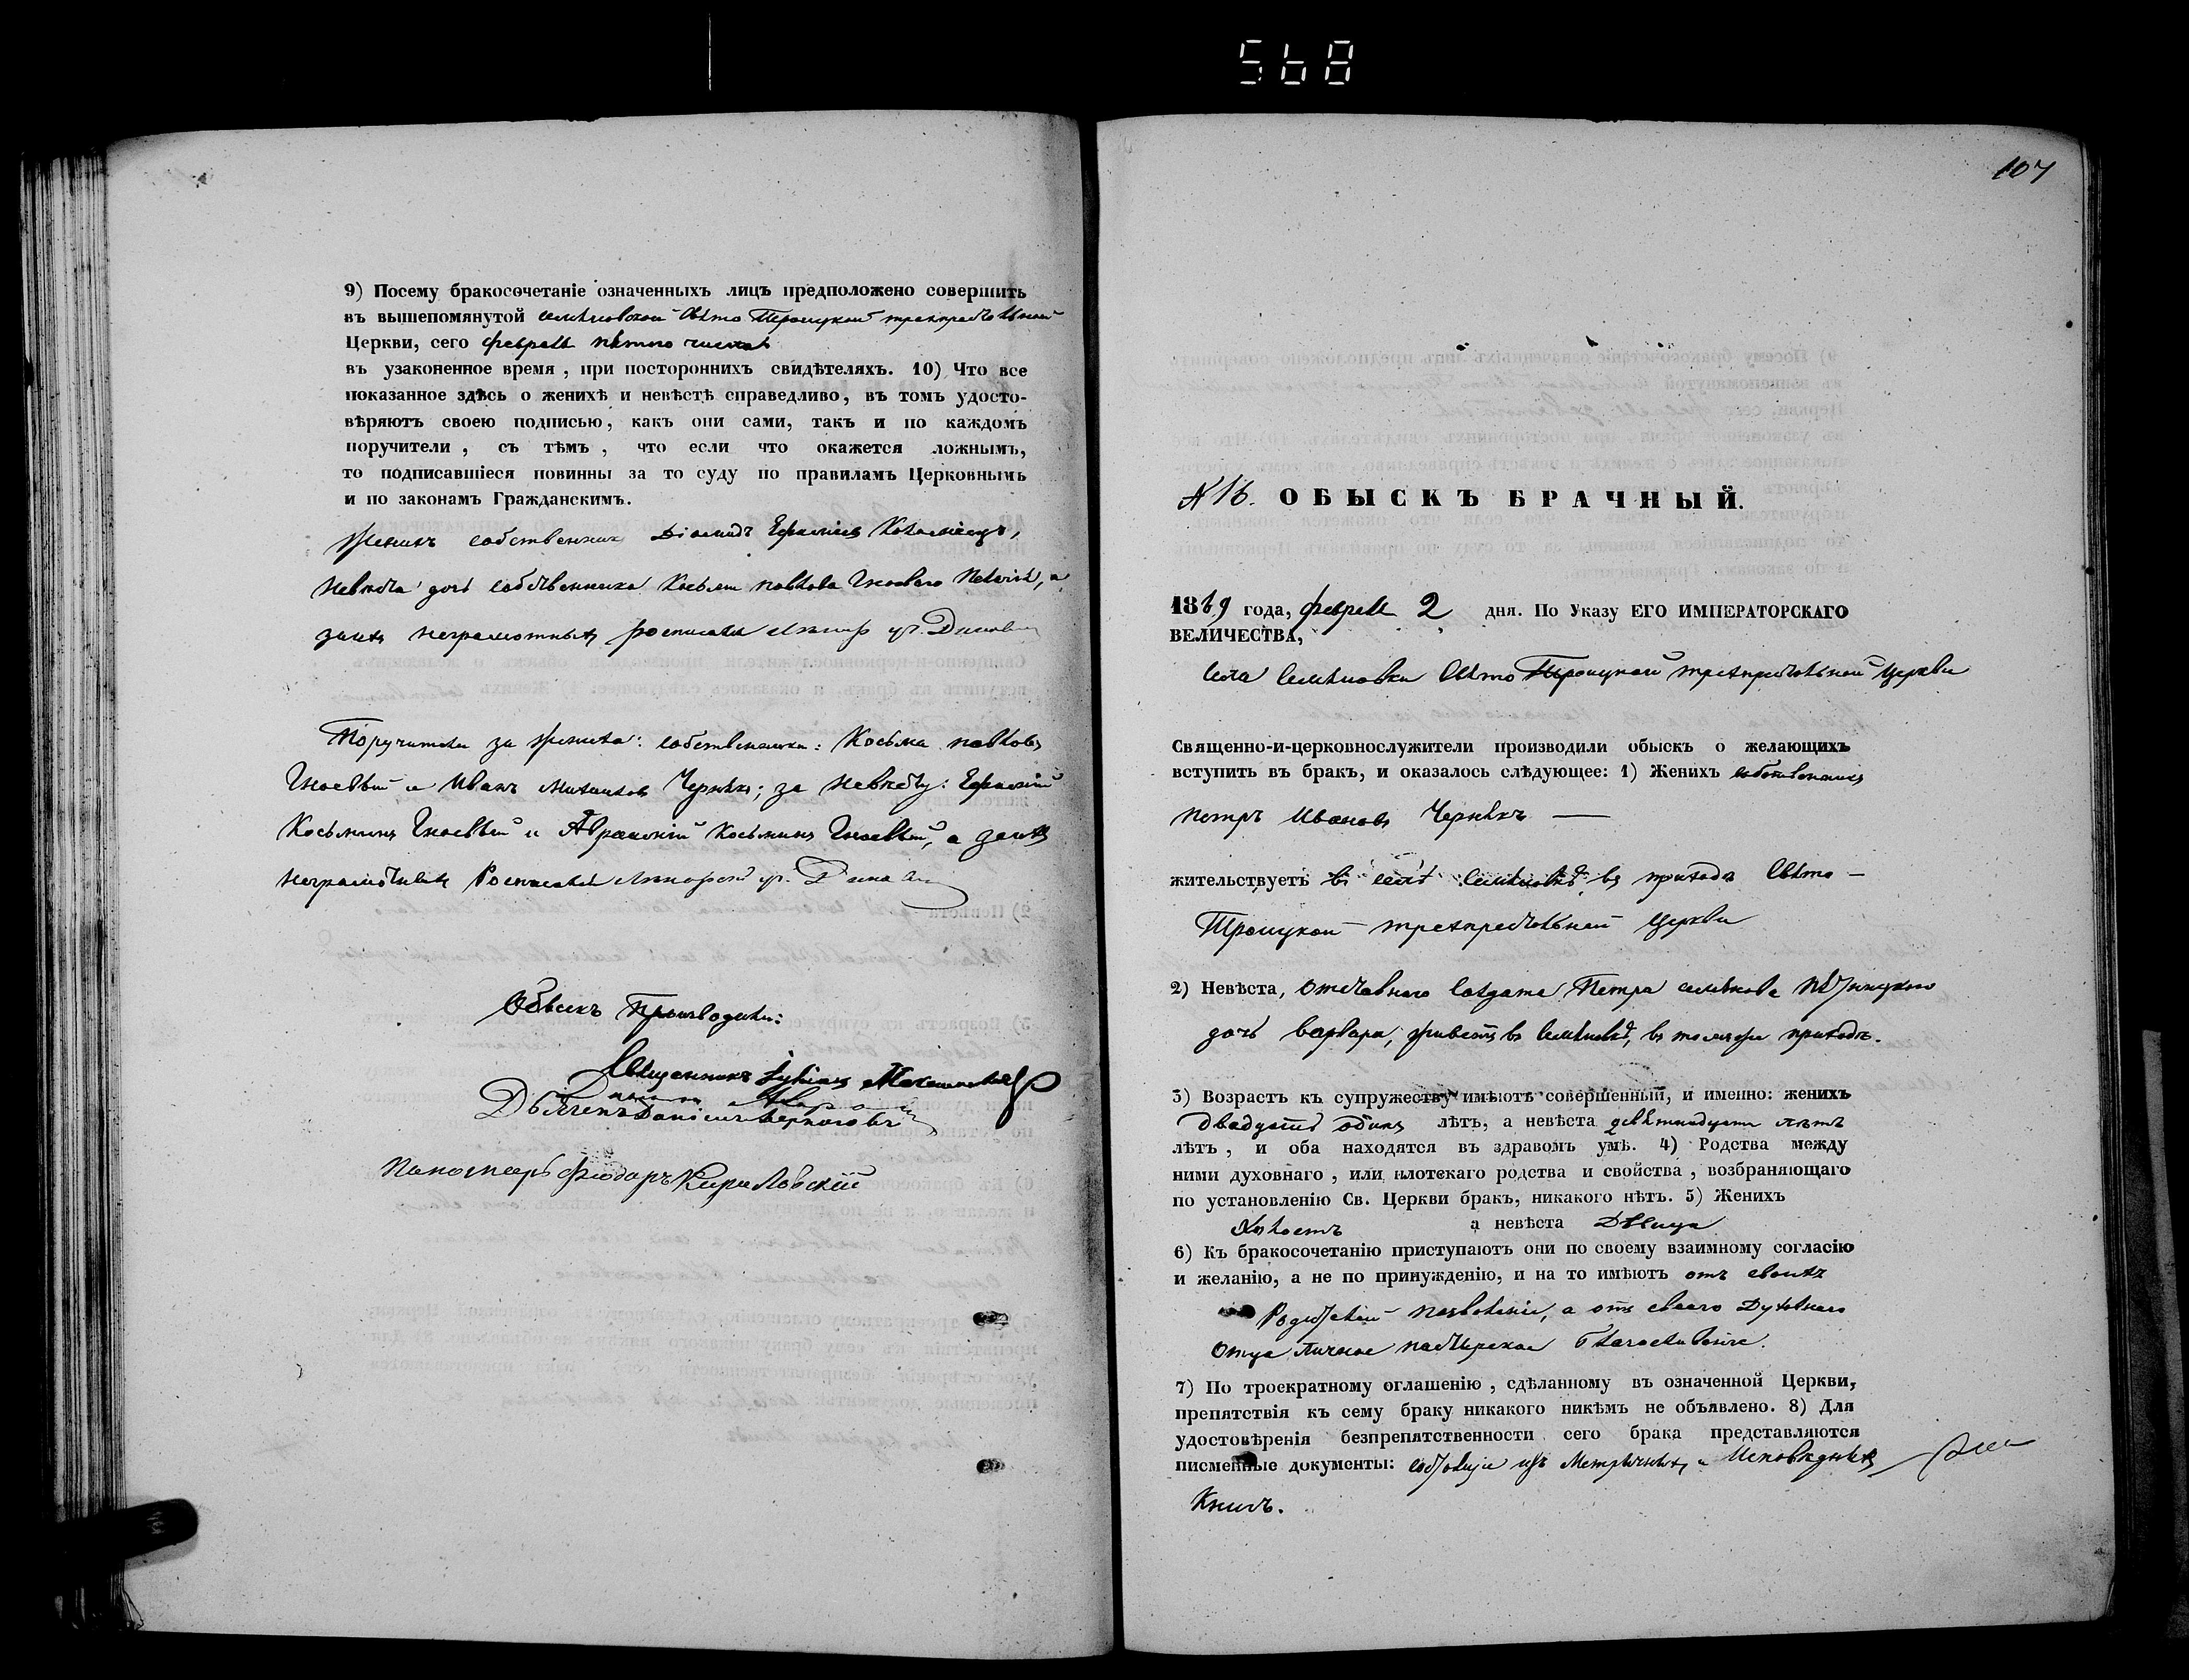 568
9) Посему бракосочетаніе означенныхъ лицъ предположено совершить
въ вышепомянутой Свято Троицкой трехпрестольной
Церкви, сего февраля пятого числа
въ узаконенное время, при постороннихъ свидѣтеляхъ. 10) Что все
показанное здѣсь о женихѣ и невѣстѣ справедливо, въ томъ удосто-
вѣряютъ своею подписью, какъ они сами, такъ и по каждомъ
поручители, съ тѣмъ, что если что окажется ложнымъ,
то подписавшіеся повинны за то суду по правиламъ Церковнымъ
и по законамъ Гражданскимъ.
Женихъ собственникъ Діомидъ
Невѣста дочь собственника Косьмы Павлова Гноеваго
за них неграмотных росписался
Поручители за жениха: собственники: Косьма Павловъ
Гноевый и Иванъ Михайловъ Чернякъ; за невѣсту:
Косьминъ Гноевый и Аврамій Косьминъ Гноевый, а за них
неграмотных росписался
Обыскъ Производили:
Священникъ
Дьячекъ Данiилъ
Пономарь Фіодоръ Кириловскій
107
№ 16. ОБЫСКЪ БРАЧНЫЙ.
1869 года, февраля 2 дня. По Указу ЕГО ИМПЕРАТОРСКАГО
ВЕЛИЧЕСТВА,
села Семяновки Свято Троицкой трехпрестольной Церкви
Священно-и-церковнослужители производили обыскъ о желающихъ
вступить въ бракъ, и оказалось слѣдующее: 1) Женихъ собственникъ
Петръ Ивановъ Чернякъ —
жительствуетъ в селѣ Семяновкѣ, въ приходѣ Свято —
Троицкой трехпрестольной Церкви
2) Невѣста, отставного солдата Петра
дочь Варвара, живетъ в Семяновкѣ, в томже приходѣ.
3) Возрастъ къ супружеству имѣютъ совершенный, и именно: женихъ
двадцать одинъ лѣтъ, а невѣста девятнадцати лѣтъ
лѣтъ, и оба находятся въ здравомъ умѣ. 4) Родства между
ними духовнаго, или плотскаго родства и свойства, возбраняющаго
по установленію Св. Церкви бракъ, никакого нѣтъ. 5) Женихъ
Холостъ а невѣста Дѣвица
6) Къ бракосочетанію приступаютъ они по своему взаимному согласію
и желанію, а не по принужденію, и на то имѣютъ отъ своихъ
Родителей позволеніе, а отъ своего Духовнаго
Отца личное пастырское благословеніе.
7) По троекратному оглашенію, сдѣланному въ означенной Церкви,
препятствія къ сему браку никакого никѣмъ не объявлено. 8) Для
удостовѣренія безпрепятственности сего брака представляются
писменные документы: изъ Метрическихъ и Исповѣдныхъ
Книгъ.